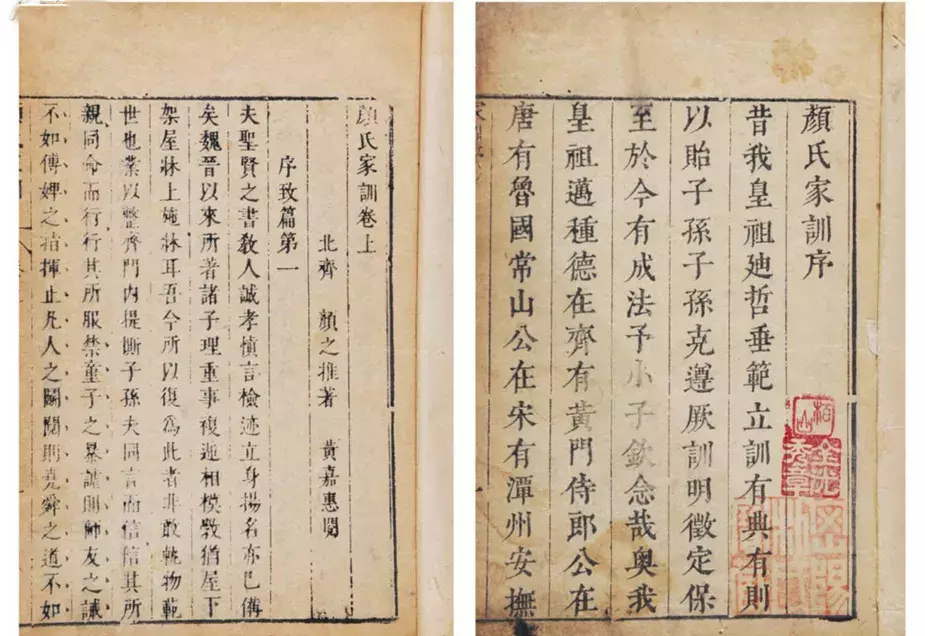 顏氏家訓序
昔我皇祖廸哲垂範立訓有典有則
以貽子孫子孫克遵厥訓明徵定保
至於今有成法予小子欽念哉奧我
皇祖邁種德在齊有黃門侍郎公在
唐有魯國常山公在宋有潭州安撫
顏氏家訓卷上
北齊 顏之推著 黃嘉惠閱
序致篇第一
夫聖賢之書敎人誠孝慎言檢迹立身揚名亦已備
矣魏晉以來所著諸子理重事複遞相模斆猶屋下
架屋牀上施牀耳吾今所以復為此者非敢軌物範
世也業以整齊門內提撕子孫夫同言而信信其所
親同命而行行其所服禁童子之暴謔則師友之誡
不如傅婢之指揮止凡人之鬬鬩則堯舜之道不如